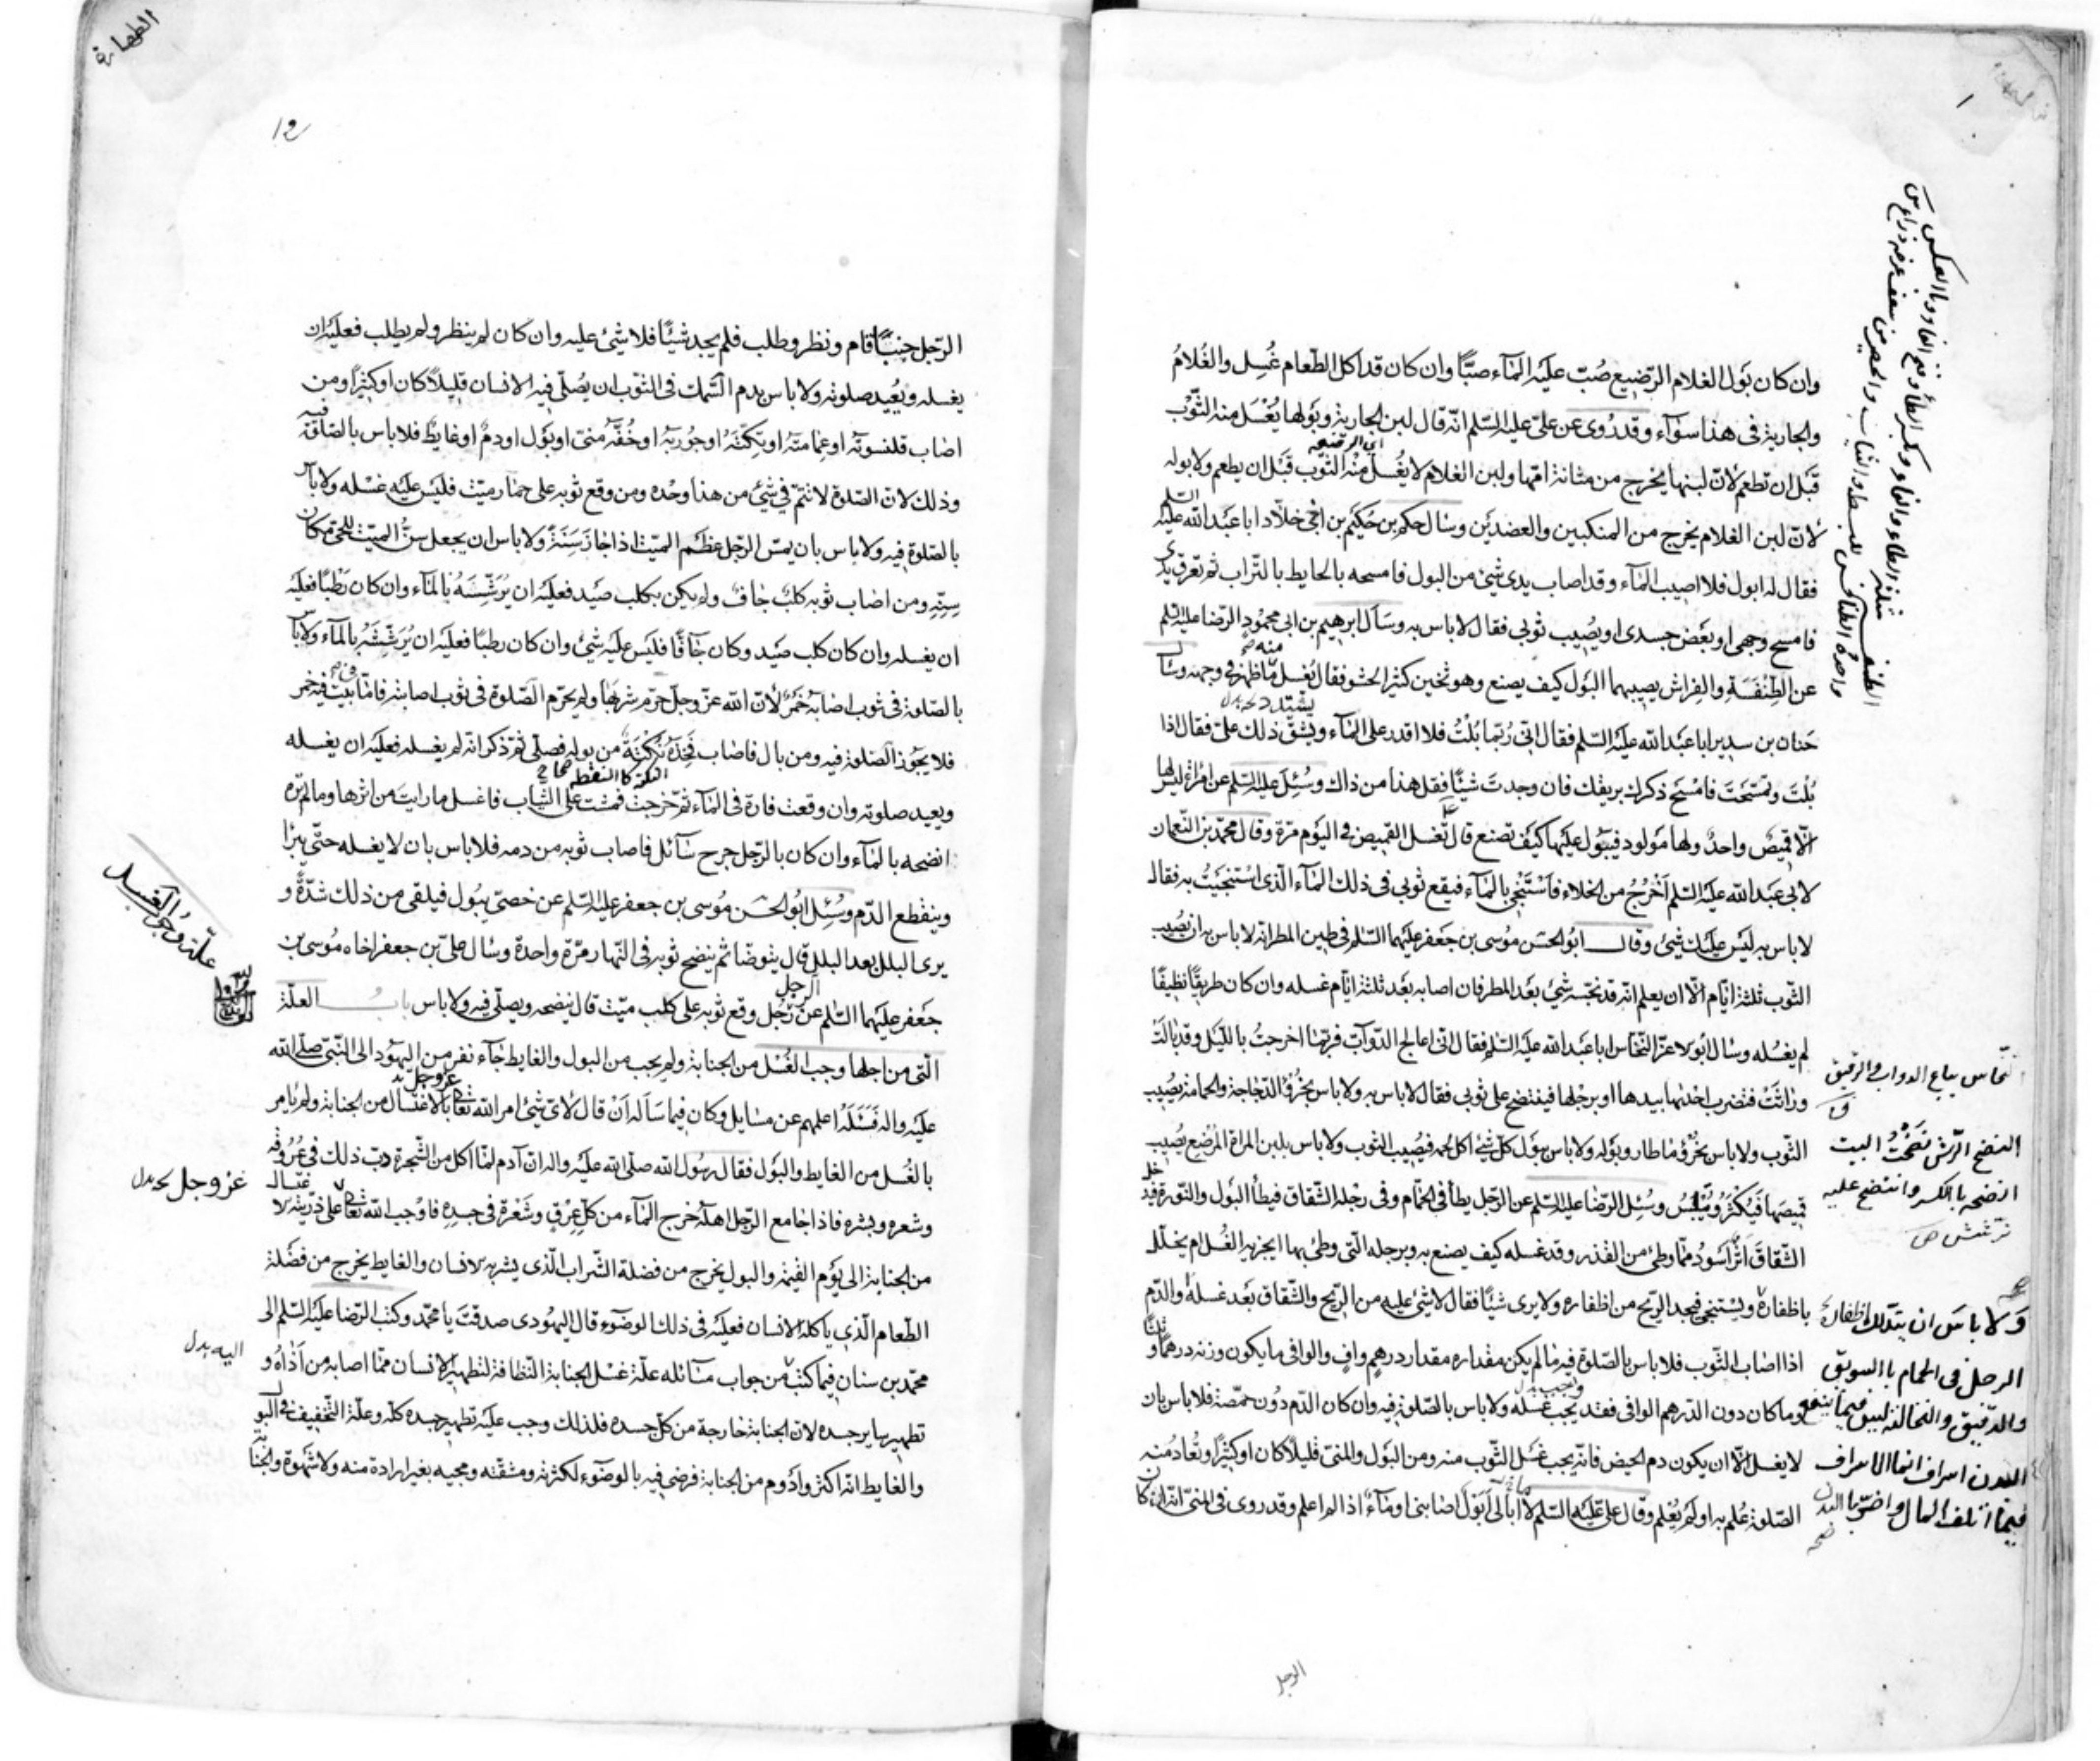 وان كان بول الغلام الرّضيع صُبّ عليه المآء صبّا وان كان قد اكل الطّعام غُسِل والغُلامُ
والجارية فى هذا سوآء وقد رُوى عن علىّ عليه السّلم انّه قال لبن الجارية وبولها يُغْسَل منه الثّوب
قبل ان تطعم لانّ لبنها يخرج من مثانة امّها ولبن الغلام لا يغسل منه الثّوب قبل ان يطعم ولا بوله
لانّ لبن الغلام يخرج من المنكبين والعضدين وسال حكم بن حُكيم بن اخى خلّاد ابا عبد الله عليه السّلم
فقال له ابول فلا اصيب المآء وقد اصاب يدى شئ من البول فامسحه بالحايط بالتّراب ثم تعرق يدى
فامسح وجهى او بعض جسدى او يصيب ثوبى فقال لاباس به وسال ابرهيم بن ابى محمود الرّضا عليه السّلم
عن الطِنْفَسَة والفِراش يصيبهما البول كيف يصنع وهو ثخين كثير الحشو فقال يُغسل ما ظهر فى وجهه وسال
حنان بن سدير ابا عبد الله عليه السّلم فقال انّى ربّما بُلْتُ فلا اقدر على المآء ويشتدّ ذلك علىّ فقال اذا
بُلْتَ وتمسّحتَ فامسَح ذكرك بريقك فان وجدتَ شيئًا فقل هذا من ذاك وسُئِلَ عليه السّلم عن امراة ليس لها
الّا قميصٌ واحدٌ ولها مَولود فيبول عليها كيف تصنع قال تغسل القميص فى اليَوم مرّة وقال محمّد بن النّعمان
لابى عبد الله عليه السّلم اَخْرُجُ من الخلاء فاَسْتَنْجِى بالمآء فيقع ثوبى فى ذلك المآء الّذى استنجيتُ به فقال
لاباس به ليس عليك شئ وقال ابو الحسن موسى بن جعفر عليهما السّلم فى طين المطر انّه لاباس به ان يصيب
الثّوب ثلثة ايّام الّا ان يعلم انّه قد نجّسه شئ بعد المطر فان اصابه بعد ثلثة ايّام غسله وان كان طريقًا نظيفًا
لم يغسله وسال ابو الاعزّ النّخّاس ابا عبد الله عليه السّلم فقال انّى اعالج الدّوآبّ فربّما خرجتُ بالليل وقد بالت
وراثَتْ فتضرب احدٰيها بيدها او برجلها فينضح على ثوبى فقال لاباس به ولاباس بخُرْؤ الدّجاجة والحمامة يصيب
الثّوب ولاباس بخرؤ ما طار وبوله ولاباس ببول كلّ شئ اكل لحمه فيصيب الثوب ولاباس بلبن المراة المرضع يصيب
قميصها فيكثر وييبس وسُئِل الرّضا عليه السّلم عن الرّجل يطأ فى الحمّام وفى رجله الشّقاق فيطأ البول والنّورة فيدخل
الشّقاق اثر اسود ممّا وطئ من القذر وقد غسله كيف يصنع به وبرجله الّتى وطئ بها ايجزيه الغُسل ام يخلّل
باظفاره ويستنجى فيجد الرّيح من اظفاره ولا يرى شيئًا فقال لاشئ عليه من الرّيح والشّقاق بعد غسله والدّم
اذا اصاب الثّوب فلاباس بالصّلوة فيه مالم يكن مقداره مقدار درهمٍ وافٍ والوافى ما يكون وزنه درهمًا وثلثًا
وما كان دون الدّرهم الوافى فقد يجب غسله ولاباس بالصّلوة فيه وان كان الدّم دون حمّصة فلاباس بان
لا يغسل الّا ان يكون دم الحيض فانّه يجب غسل الثّوب منه ومن البول والمنىّ قليلًا كان او كثيرًا وتُعاد منه
الصّلوة عُلم به او لم يُعلم وقال علىّ عليه السّلم لا اُبالى اَبَوْلٌ اصابنى او مآءٌ اذا لم اعلم وقد روى فى المنىّ انّه ان كان
النضح الرّش نضحتُ البيت
انضحه بالكسر وانتضح عليه
ترشش ص
ولا باس ان يتدلك
الرجل فى الحمام بالسويق
والدقيق والنخالة ليس فيما ينفع
البدن اسراف انما الاسراف
فيما اتلف المال واضرّ بالبدن
الرجل
الطهارة
12
الرّجل جنبًا قام ونظر وطلب فلم يجد شيئًا فلا شئ عليه وان كان لم ينظر ولم يطلب فعليه ان
يغسله ويُعيد صلوته ولاباس بدم السّمك فى الثّوب ان يُصلّى فيه الانسان قليلًا كان او كثيرًا ومن
اصاب قلنسوته او عِمامتهُ او تكّته او جوربه او خُفّه منىّ او بَول او دمٌ او غايطٌ فلاباس بالصّلوة فيه
وذلك لانّ الصّلوة لا تتمّ فى شئ من هذا وحده ومن وقع ثوبه على حمار ميّت فليس عليه غسله ولاباس
بالصّلوة فيه ولاباس بان يمسّ الرّجل عظم الميّت اذا جاز سَنَةً ولاباس ان يجعل سنّ الميّت للحىّ مكان
سِنّه ومن اصاب ثوبه كلبٌ جافٌ ولم يكن بكلب صيد فعليه ان يرشّه بالمآء وان كان رَطْبًا فعليه
ان يغسله وان كان كلب صيد وكان جآفًّا فليس عليه شئ وان كان رطبًا فعليه ان يرشّه بالمآء ولاباس
بالصّلوة فى ثوب اصابه خَمْرٌ لانّ الله عزّ وجلّ حرّم شربها ولم يحرّم الصّلوة فى ثوب اصابته فامّا فى بيت فيه خمر
فلا يجوز الصّلوة فيه ومن بال فاصاب فخذه نكتة من بوله فصلّى ثم ذكر انّه لم يغسله فعليه ان يغسله
ويعيد صلوته وان وقعت فارة فى المآء ثم خرجت فمشت على الثّياب فاغسل ما رايت من اثرها وما لم تره
انضحه بالمآء وان كان بالرّجل جرح سآئل فاصاب ثوبه من دمه فلاباس بان لا يغسله حتّى يبرأ
وينقطع الدّم وسُئل ابو الحسن موسى بن جعفر عليه السّلم عن خصىّ يبول فيلقى من ذلك شدّةً و
يرى البلل بعد البلل قال يتوضّا ثم ينضح ثوبه فى النّهار مرّة واحدة وسال علىّ بن جعفر اخاه موسى بن
جعفر عليهما السّلم عن رّجُل وقع ثوبه على كلب ميّت قال ينضحه ويصلّى فيه ولاباس باب العلّة
الّتى من اجلها وجب الغُسْل من الجنابة ولم يجب من البول والغايط جآء نفر من اليهود الى النّبىّ صلّى الله
عليه واله فَسَئَلَهُ اعلمهم عن مسايل وكان فيما سَاَله اَنْ قال لاىّ شئ امر الله تعا بالاغتسال من الجنابة ولم يامر
بالغُسل من الغايط والبول فقال رسول الله صلّى الله عليه واله انّ آدم لمّا اكل من الشّجرة دبّ ذلك فى عُرُوقه
وشعره وبشره فاذا جامع الرّجل اهله خرج المآء من كلّ عِرْقٍ وشَعْرة فى جسده فاوجب الله تعا على ذرّيّته الاغتسال
من الجنابة الى يوم القيمة والبول يخرج من فضلة الشّراب الّذى يشربه الانسان والغايط يخرج من فضلة
الطّعام الّذى ياكله الانسان فعليه فى ذلك الوضوء قال اليهودى صدقتَ يا محمّد وكتب الرّضا عليه السّلم الى
محمّد بن سنان فيما كتب من جواب مسآئله علّة غسل الجنابة النّظافة لتطهير الانسان ممّا اصابه من اَذاهُ و
تطهير ساير جسده لانّ الجنابة خارجة من كلّ جسده فلذلك وجب عليه تطهير جسده كلّه وعلّة التّخفيف فى البول
والغايط انّه اكثر وادوم من الجنابة فرضى فيه بالوضوء لكثرته ومشقّته ومجيئه بغير ارادة منه ولا شهوة والجنابة
علّة وجوب الغسل
عزّ وجل بدل
اليه بدل